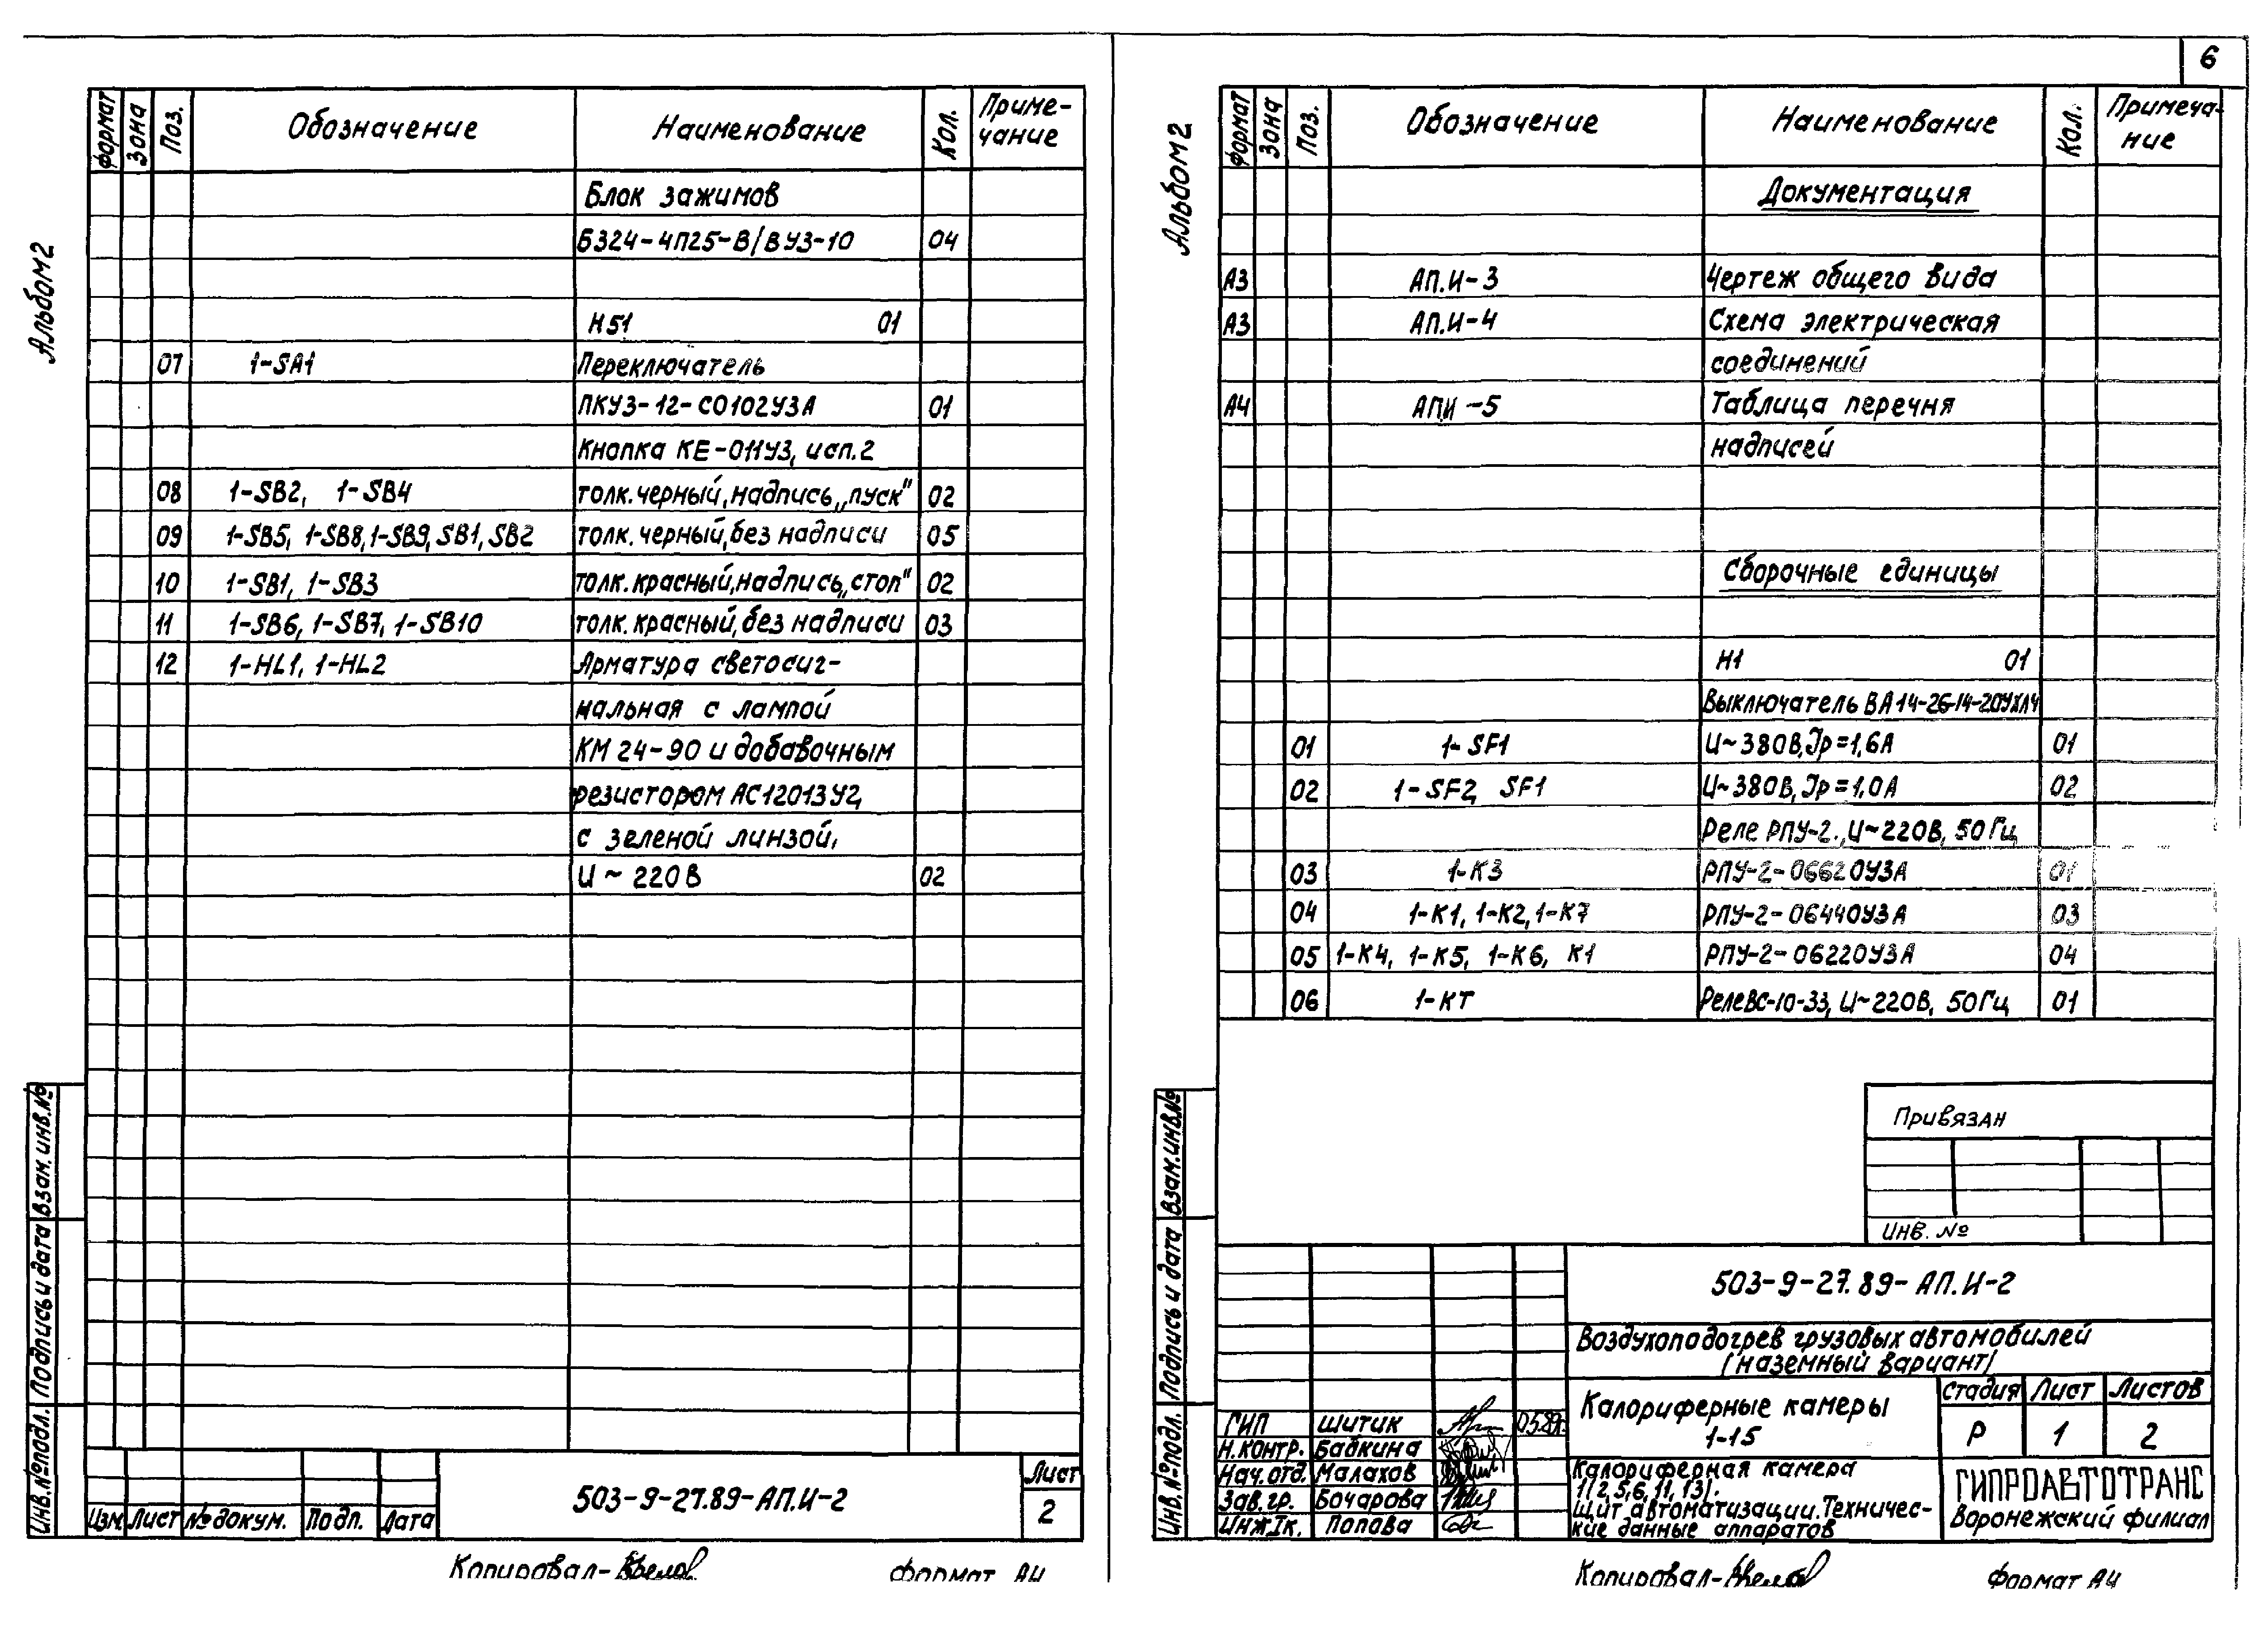 6
Альбом 2
Формат Зона Поз. Обозначение Наименование Кол. Приме-
чание
Блок зажимов
БЗ24-4П25-В/ВУЗ-10 04
Н51 01
07 1-SA1 Переключатель
ПКУЗ-12-С0102УЗА 01
Кнопка КЕ-011УЗ, исп.2
08 1-SB2, 1-SB4 толк. черный, надпись „пуск" 02
09 1-SB5, 1-SB8, 1-SB9, SB1, SB2 толк. черный, без надписи 05
10 1-SB1, 1-SB3 толк. красный, надпись „стоп" 02
11 1-SB6, 1-SB7, 1-SB10 толк. красный, без надписи 03
12 1-HL1, 1-HL2 Арматура светосиг-
нальная с лампой
КМ 24-90 и добавочным
резистором АС12013У2,
с зеленой линзой,
U ~ 220В 02
Инв. № подл. Подпись и дата Взам. инв. №
Изм. Лист № докум. Подп. Дата
503-9-27.89-АП.И-2
Лист
2
Копировал-
Формат А4
Альбом 2
Формат Зона Поз. Обозначение Наименование Кол. Примеча-
ние
Документация
А3 АП.И-3 Чертеж общего вида
А3 АП.И-4 Схема электрическая
соединений
А4 АПИ-5 Таблица перечня
надписей
Сборочные единицы
Н1 01
Выключатель ВА14-26-14-20УХЛ4
01 1-SF1 U~380В, Iр=1,6А 01
02 1-SF2, SF1 U~380В, Iр=1,0А 02
Реле РПУ-2., U~220В, 50Гц
03 1-К3 РПУ-2-06620УЗА 01
04 1-К1, 1-К2, 1-К7 РПУ-2-06440УЗА 03
05 1-К4, 1-К5, 1-К6, К1 РПУ-2-06220УЗА 04
06 1-КТ Реле ВС-10-33, U~220В, 50Гц 01
Привязан
Инв. №
Инв. № подл. Подпись и дата Взам. инв. №
503-9-27.89-АП.И-2
Воздухоподогрев грузовых автомобилей
(наземный вариант)
ГИП Шитик 05.89г.
Н. контр. Бабкина
Нач. отд. Малахов
Зав. гр. Бочарова
Инж. Iк. Попова
Калориферные камеры
1-15
Стадия Лист Листов
Р 1 2
Калориферная камера
1(2,5,6,11,13).
Щит автоматизации. Техничес-
кие данные аппаратов
ГИПРОАВТОТРАНС
Воронежский филиал
Копировал-
Формат А4